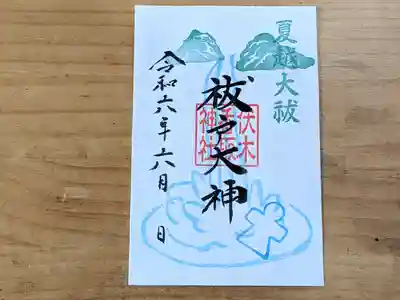 夏越大祓
祓戸大神
伏木香取神社
令和六年六月 日